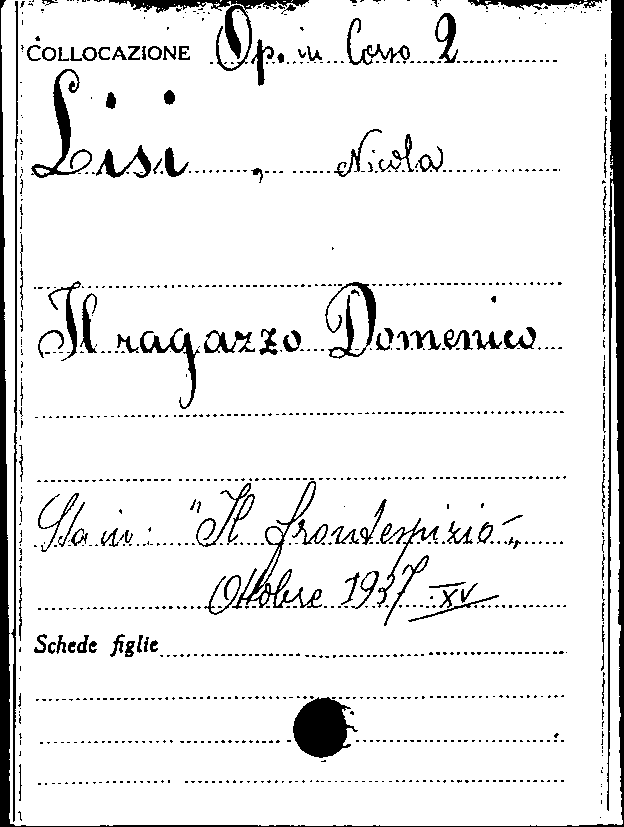 COLLOCAZIONE Op. in Corso 2
Lisi, Nicola
Il ragazzo Domenico
Sta in: "Il frontespizio",
Ottobre 1937 XV
Schede figlie